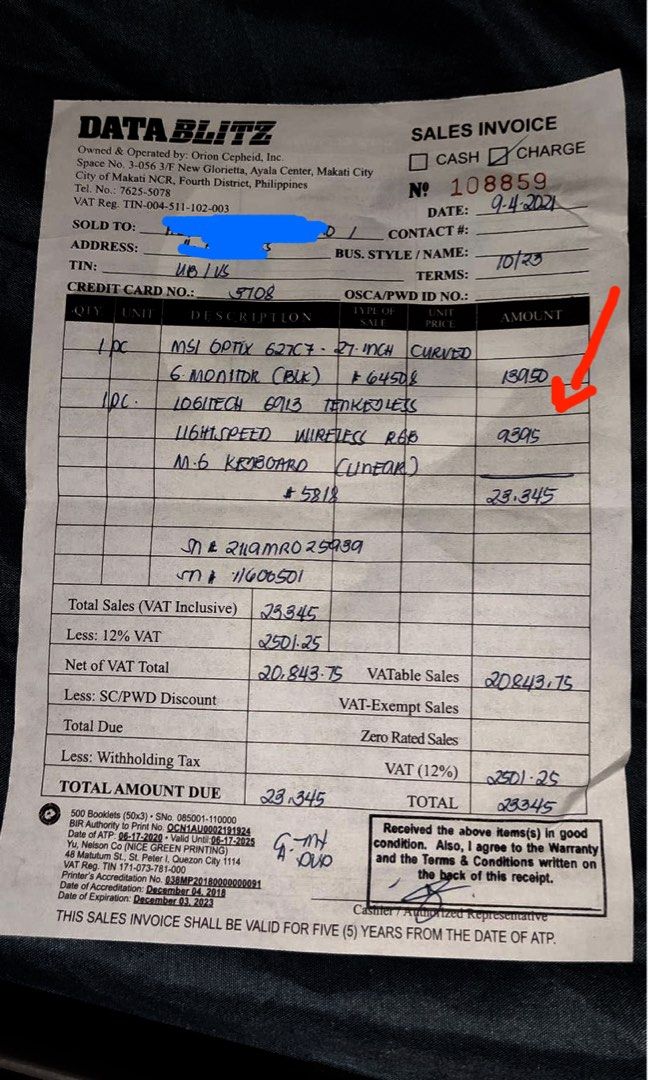 DATA BLITZ
Owned & Operated by: Orion Cepheid, Inc.
Space No. 3-056 3/F New Glorietta, Ayala Center, Makati City
City of Makati NCR, Fourth District, Philippines
Tel. No.: 7625-5078
VAT Reg. TIN-004-511-102-003
SALES INVOICE
CASH CHARGE
Nº 108859
DATE: 9-4-2021
SOLD TO:
CONTACT #:
ADDRESS:
BUS. STYLE / NAME:
TIN: UB / VS
TERMS: 10/23
CREDIT CARD NO.: 5708
OSCA/PWD ID NO.:
QTY UNIT DESCRIPTION TYPE OF SALE UNIT PRICE AMOUNT
1 PC MSI OPTIX G27C7 - 27-INCH CURVED
G. MONITOR (BLK) # 64508 13950
1 PC. LOGITECH G913 TENKEYLESS
LIGHTSPEED WIRELESS RGB 9395
M.G KEYBOARD (LINEAR)
# 5818 23.345
SN # 2119MR025939
SN # 11606501
Total Sales (VAT Inclusive) 23345
Less: 12% VAT 2501.25
Net of VAT Total 20.843.75 VATable Sales 20843.75
Less: SC/PWD Discount VAT-Exempt Sales
Total Due Zero Rated Sales
Less: Withholding Tax VAT (12%) 2501.25
TOTAL AMOUNT DUE 23.345 TOTAL 23345
500 Booklets (50x3) • SNo. 085001-110000
BIR Authority to Print No. OCN1AU0002191924
Date of ATP: 06-17-2020 • Valid Until: 06-17-2025
Yu, Nelson Co (NICE GREEN PRINTING)
48 Matutum St., St. Peter I, Quezon City 1114
VAT Reg. TIN 171-073-781-000
Printer's Accreditation No. 038MP20180000000091
Date of Accreditation: December 04, 2018
Date of Expiration: December 03, 2023
Received the above items(s) in good
condition. Also, I agree to the Warranty
and the Terms & Conditions written on
the back of this receipt.
Cashier / Authorized Representative
THIS SALES INVOICE SHALL BE VALID FOR FIVE (5) YEARS FROM THE DATE OF ATP.